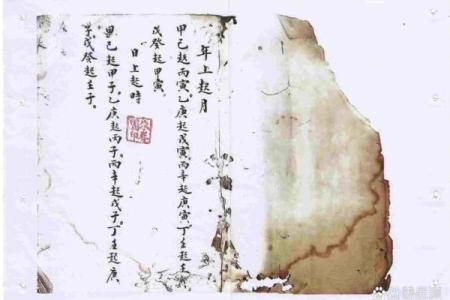 年上起月
甲己起丙寅。乙庚起戊寅。丙辛起庚寅。丁壬起壬寅。
戊癸起甲寅。
日上起時
甲己起甲子。乙庚起丙子。丙辛起戊子。丁壬起庚
子。戊癸起壬子。